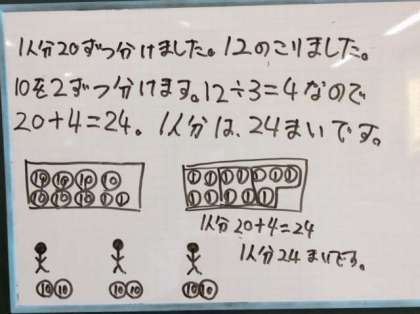 1人分20ずつ分けました。12のこりました。
10を2ずつ分けます。12÷3=4なので
20+4=24。1人分は、24まいです。
10 10 10 10
10 10 10 1 1
1 1 1 1 1 1 1
1 1 1 1 1
1人分 20+4=24
1人分 24まいです。
10 10 10 10 10 10